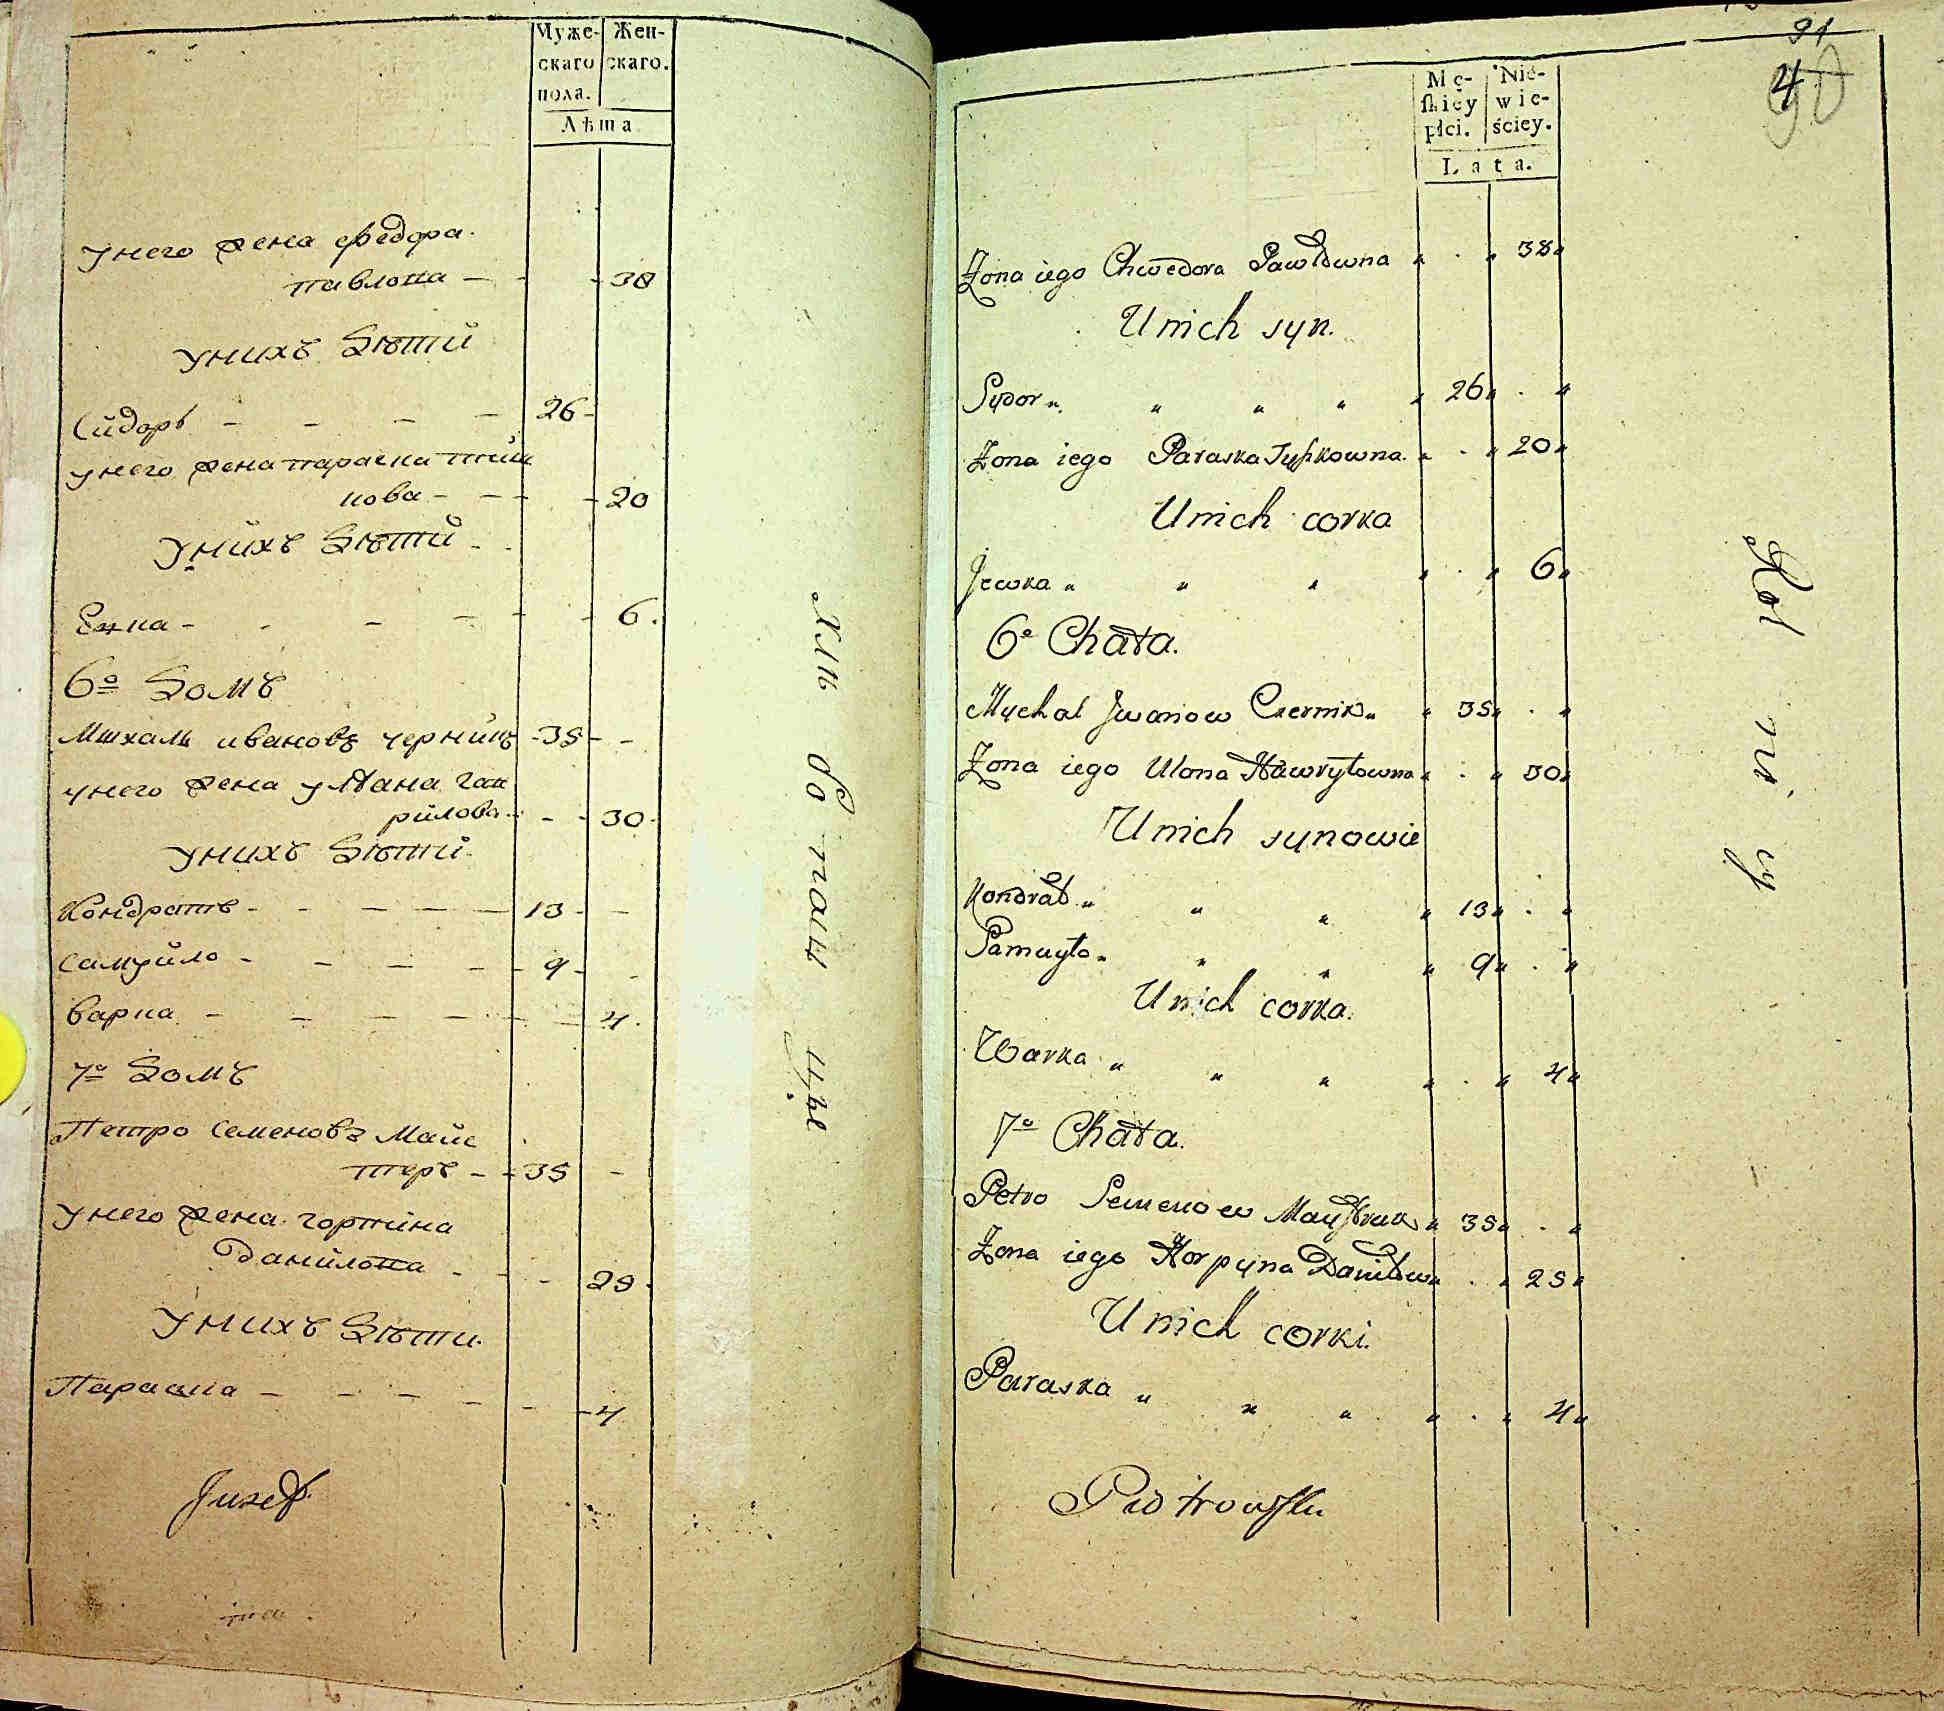 Муже-
скаго
пола.
Жен-
скаго.
Лѣта
унего жена Федора
павлова - - - 38
унихъ Дѣтти
Сйдоръ - - - - 26 -
унего жена параска тиш
кова - - - - 20
унйхъ Дѣтти -
Евка - - - - - - 6.
6о Домъ
Михаль ивановъ чернйкъ - 35 - -
унего жена уляна гав
рйлова - - - 30 -
унихъ Дѣтти.
Кондратъ - - - - - 13 - -
Самуйло - - - - - 9 - -
Варка - - - - - - 4.
7о Домъ
Петро Семеновъ Майс
теръ - - 35 -
унего жена горпйна
Данйлова - - - 25.
унихъ Дѣтти.
Параска - - - - - - 4
Jusef
хлѣ бо паш цы
91
4
90
Mę-
skiey
płci.
Nie-
wie-
ściey.
Lata.
Żona iego Chwedora Pawłowna „ . „ 38„
Unich syn.
Sydor „ „ „ „ „ 26„ . „
Żona iego Paraska Tyszkowna „ . „ 20„
Unich corka
Jewka „ „ „ „ . „ 6„
6o Chata.
Mychal Jwanow Czernik„ „ 35„ . „
Żona iego Ulana Hawryłowna „ . „ 30„
Unich synowie
Kondrat „ „ „ „ 13„ . „
Samuyło „ „ „ „ 9„ . „
Unich corka.
Warka „ „ „ „ . „ 4„
7o Chata.
Petro Semenow Maystruk „ 35„ . „
Żona iego Horpyna Daniłow „ . „ 25„
Unich corki.
Paraska „ „ „ „ . „ 4„
Piotrowski
Rol ni cy